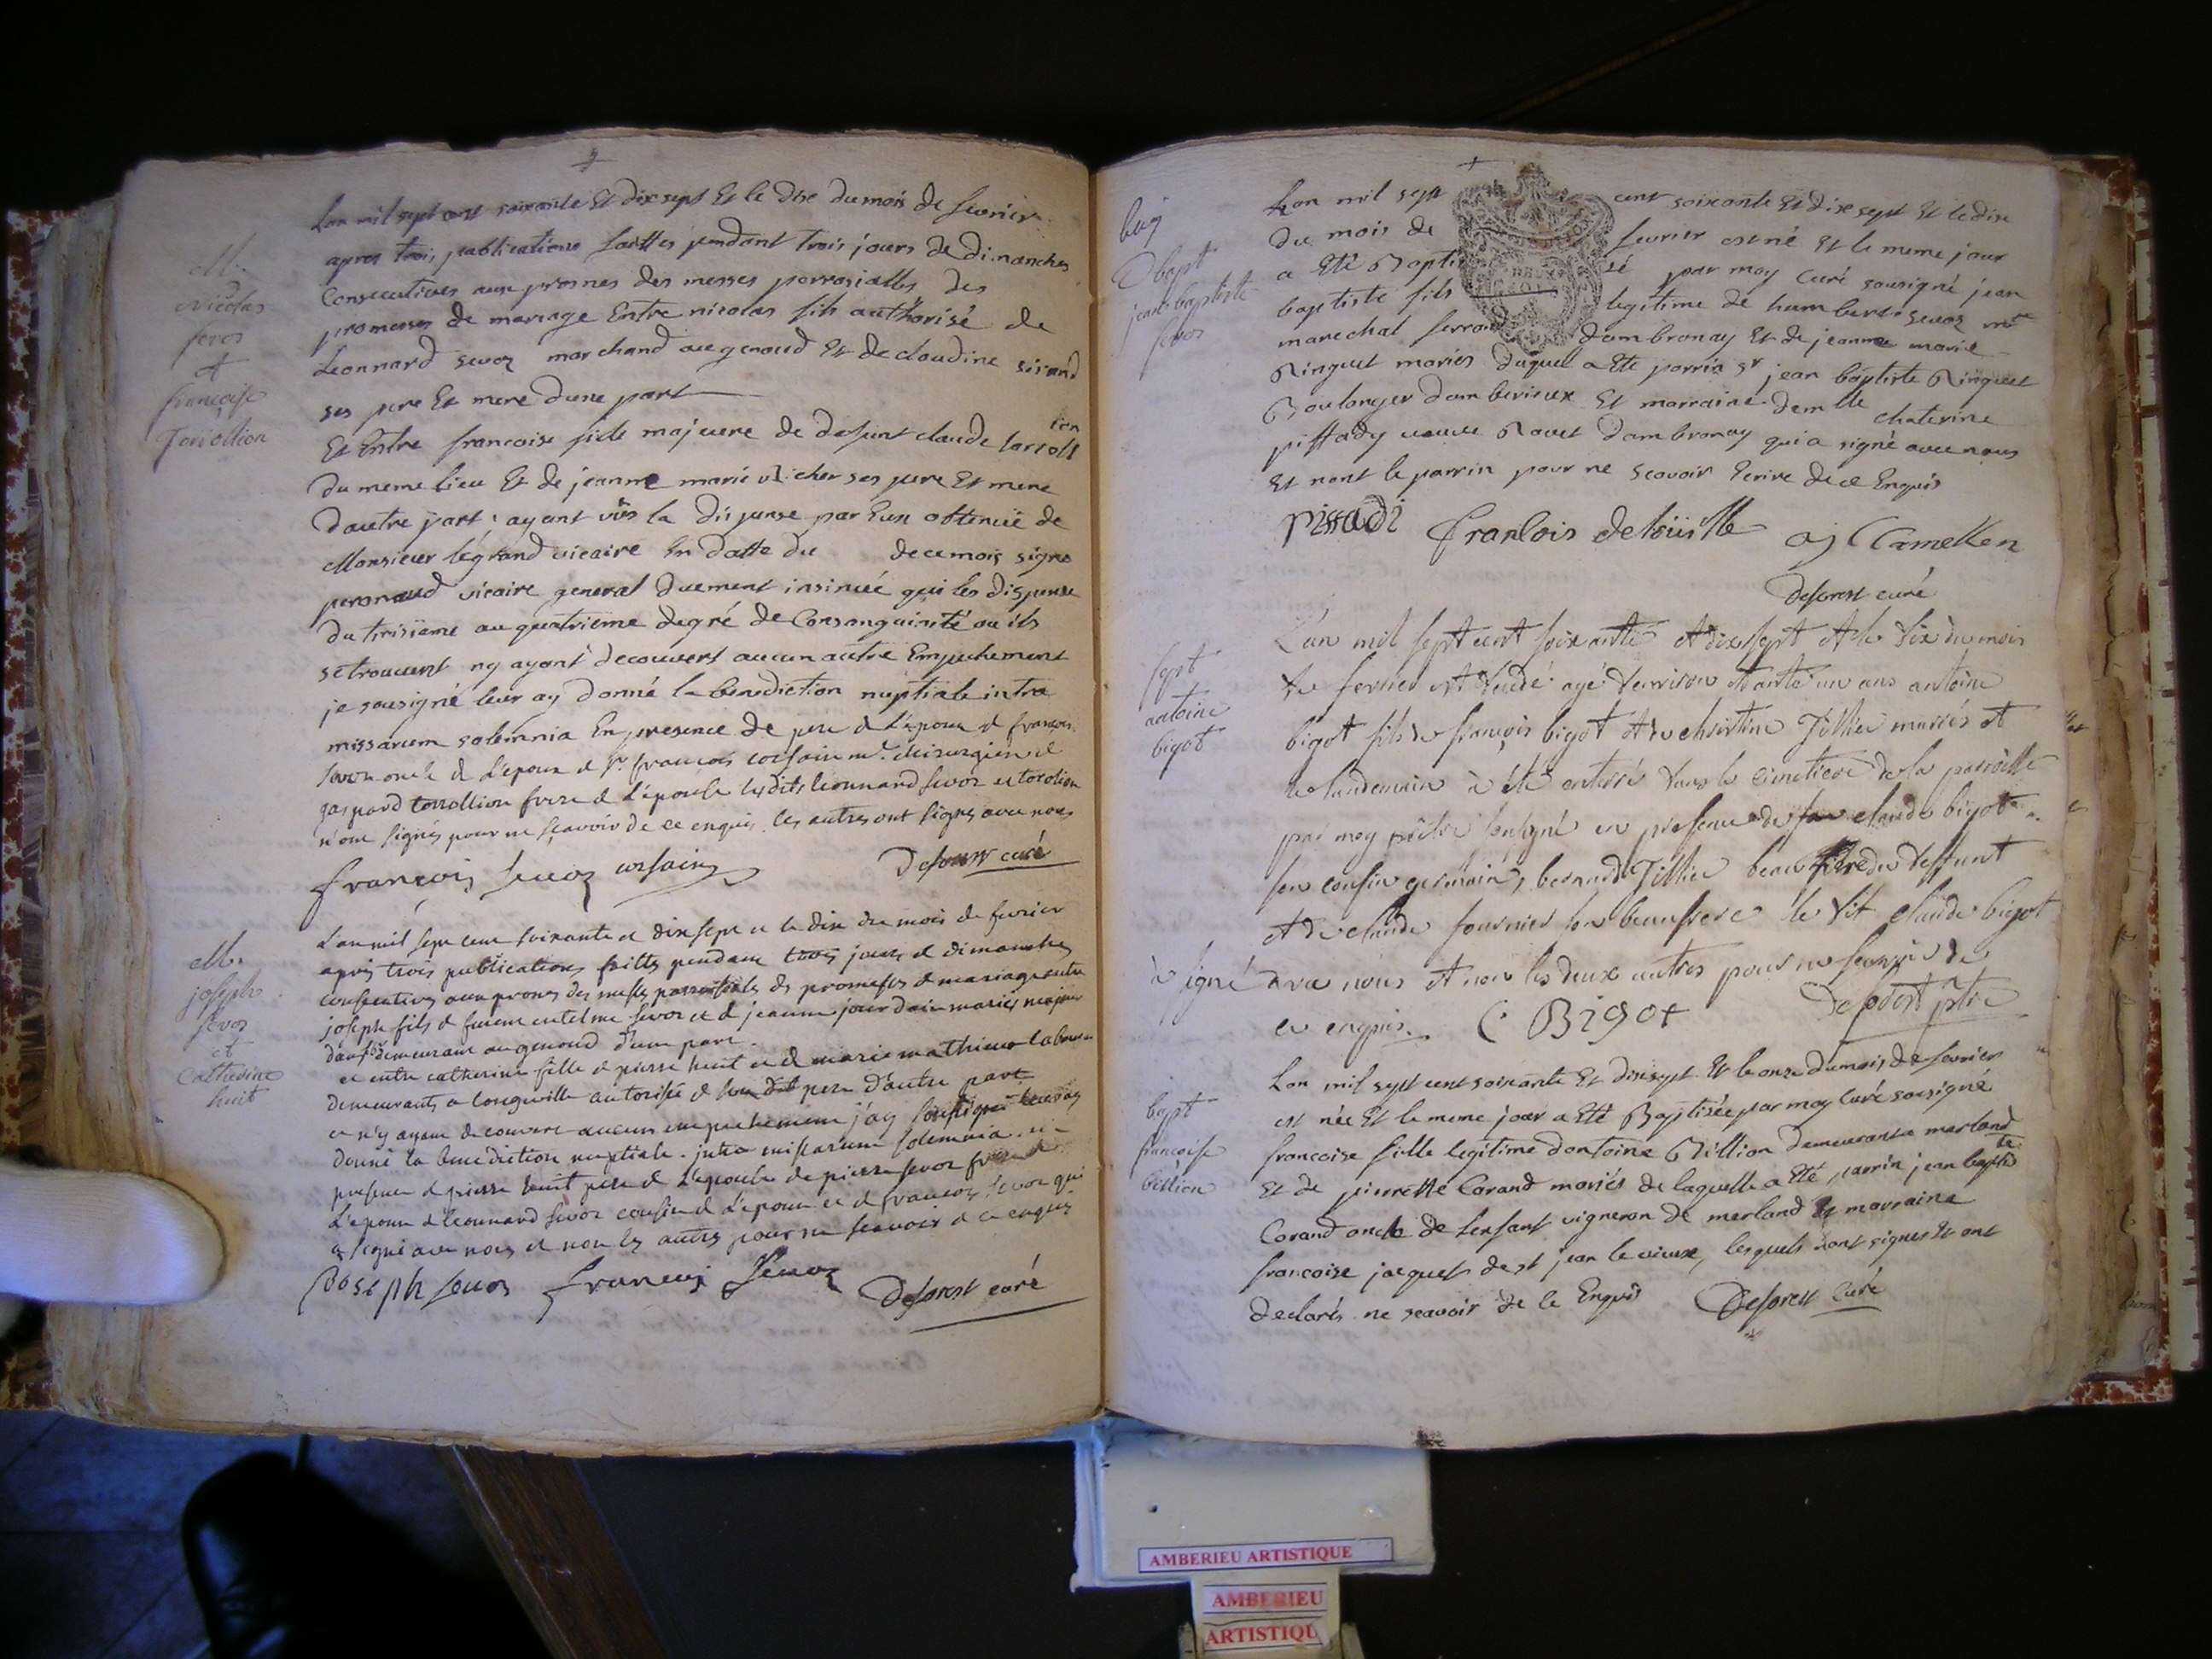 Lan mil sept cent soixante Et dix sept Et le dix du mois de fevrier
apres trois publications faittes pendant trois jours de dimanches
Consecutives aux prosnes des messes parrosialles des
promesses de mariage Entre nicolas fils authorisé de
Leonnard sevoz marchand au genoud Et de claudine sirand
ses pere Et mere dune part
Et Entre francoise fille majeure de defunt claude toroll
lion
du meme lieu Et de jeanne marie ses pere Et mere
dautre part ayant vûs la dispense par Eux obtenuë de
Monsieur le grand vicaire En datte du de ce mois signe
vicaire general duement insinuée qui les dispense
du troisieme au quatrieme degré de Consanguinité ou ils
se trouvent ny ayant decouvert aucun autre Empechement
je sousigné leur ay donné la benediction nuptiale intra
missarum solemnia En presence de pere de L'epoux de françois
sevoz oncle de L'epoux de Sr. françois corsain me. chirurgien et
gaspard torrollion frere de L'epouse lesdits leonnard sevoz et torolion
n'ont signés pour ne sçavoir de ce enquis les autres ont signes avec nous
françois sevoz corsain Deforest curé
M.
nicolas
sevos
et
françoise
Torollion
L'an mil sept cent soixante et dix sept et le dix du mois de fevrier
apres trois publications faittes pendant trois jours de dimanches
consecutives aux prones des messes parroissiales des promesses de mariage entre
joseph fils de sevoz et de jeanne jourdain mariés majeur
demeurant au genoud d'une part
et entre catherine fille de pierre huit et de marie mathieux
demeurants a longeville autorisée de son dit pere d'autre part
et n'y ayant decouvert aucun empechement j'ay soussigné
donné la benediction nuptiale intra missarum solemnia en
presence de pierre huit pere de L'epouse de pierre sevoz frere de
L'epoux de leonnard sevoz cousin de L'epoux et de francois sevoz qui
a signé avec nous et non les autres pour ne scavoir de ce enquis
Joseph sevos françois Sevoz Deforest curé
M.
joseph
sevoz
et
Catherine
huit
Lan mil sept cent soixante Et dix sept Et le dix
du mois de fevrier est né Et le meme jour
a Eté Baptisé par moy Curé sousigné jean
baptiste fils legitime de humbert sevoz me
marechal ferrand dambronay Et de jeanne marie
Ringuet mariés duquel a Eté parrin sr jean baptiste Ringuet
Boulanger damberieux Et marraine demlle chaterine
pissady veuve dambronay qui a signé avec nous
Et non le parrin pour ne scavoir Ecrire de ce Enquis
Pissadi
Deforest curé
bapt
jean baptiste
sevos
L'an mil sept cent soixante et dix sept et le dix du mois
de fevrier est décédé agé d'environ un ans antoine
bigot fils de françois bigot et de christine Tillier mariés et
le lendemain a été enterré dans le cimetiere de la paroisse
par moy prêtre soussigné en presence de claude bigot
son cousin germain, bernard Tillier beau frere du deffunt
et de claude fournier son beaufrere le dit claude bigot
a signé avec nous et non les deux autres pour ne scavoir de
ce enquis. C Bigot
sept
antoine
bigot
Lan mil sept cent soixante Et dix sept Et le onze du mois de fevrier
est née Et le meme jour a Eté Baptisée par moy Curé sousigné
francoise fille legitime dantoine Billion demeurant a merland
Et de pierrette Corand mariés de laquelle a Eté parrin jean baptte
Corand oncle de lenfant vigneron de merland Et marraine
francoise jacquet de st jean le vieux, lesquels nont signes Et ont
declarés ne scavoir de ce Enquis Deforest Curé
bapt
françoise
billion
AMBERIEU ARTISTIQUE
AMBERIEU
ARTISTIQU